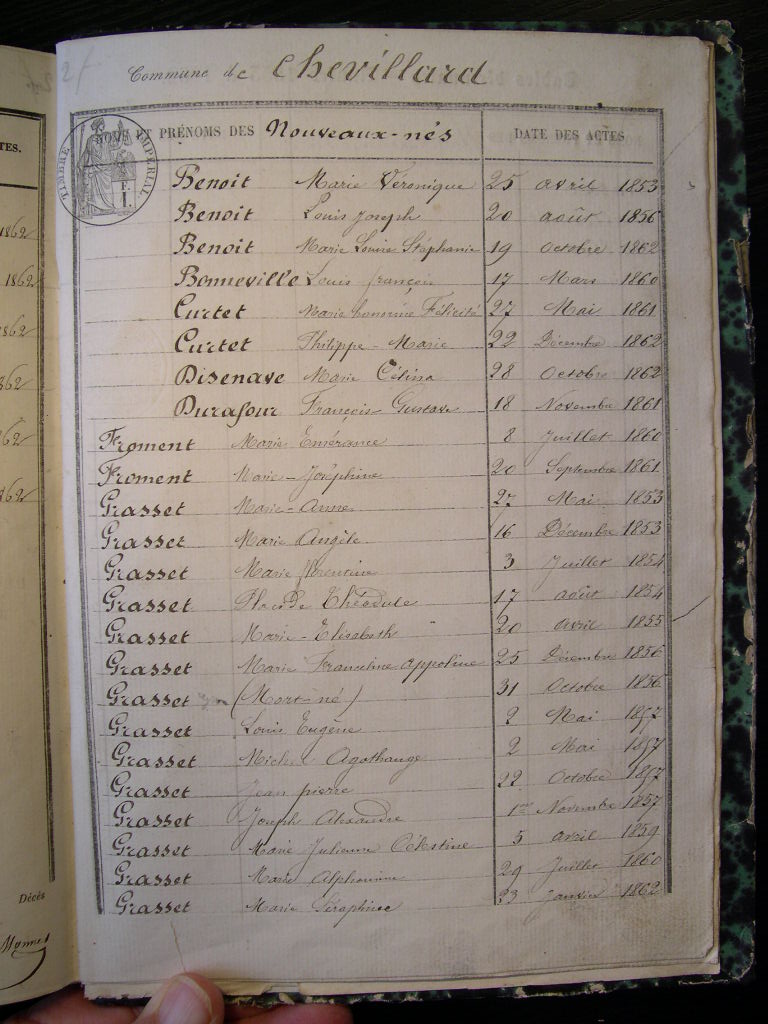 2
Commune de Chevillard
TIMBRE IMPÉRIAL
F. 1.
NOMS ET PRÉNOMS DES Nouveaux-nés DATE DES ACTES
Benoit Marie Véronique 25 avril 1853
Benoit Louis Joseph 20 août 1856
Benoit Marie Louise Stephanie 19 Octobre 1862
Bonneville Louis françois 17 Mars 1860
Curtet Marie honorine Félicité 27 Mai 1861
Curtet Philippe-Marie 22 Décembre 1862
Disenave Marie Célina 28 Octobre 1862
Durafour François Gustave 18 Novembre 1861
Froment Marie Emérance 8 Juillet 1860
Froment Marie-Joséphine 20 Septembre 1861
Grasset Marie-Anne 27 Mai 1853
Grasset Marie Angèle 16 Décembre 1853
Grasset Marie florentine 3 Juillet 1854
Grasset Placide Théodule 17 août 1854
Grasset Marie-Elisabeth 20 avril 1855
Grasset Marie Franceline Appoline 25 Décembre 1856
Grasset (Mort-né) 31 Octobre 1856
Grasset Louis Eugène 2 Mai 1857
Grasset Michel Agathange 2 Mai 1857
Grasset Jean pierre 22 Octobre 1857
Grasset Joseph Alexandre 1er Novembre 1857
Grasset Marie Julienne Célestine 5 avril 1859
Grasset Marie Alphonsine 29 Juillet 1860
Grasset Marie Séraphine 23 Janvier 1862
TES.
1862
1862
1862
862
62
62
Décès